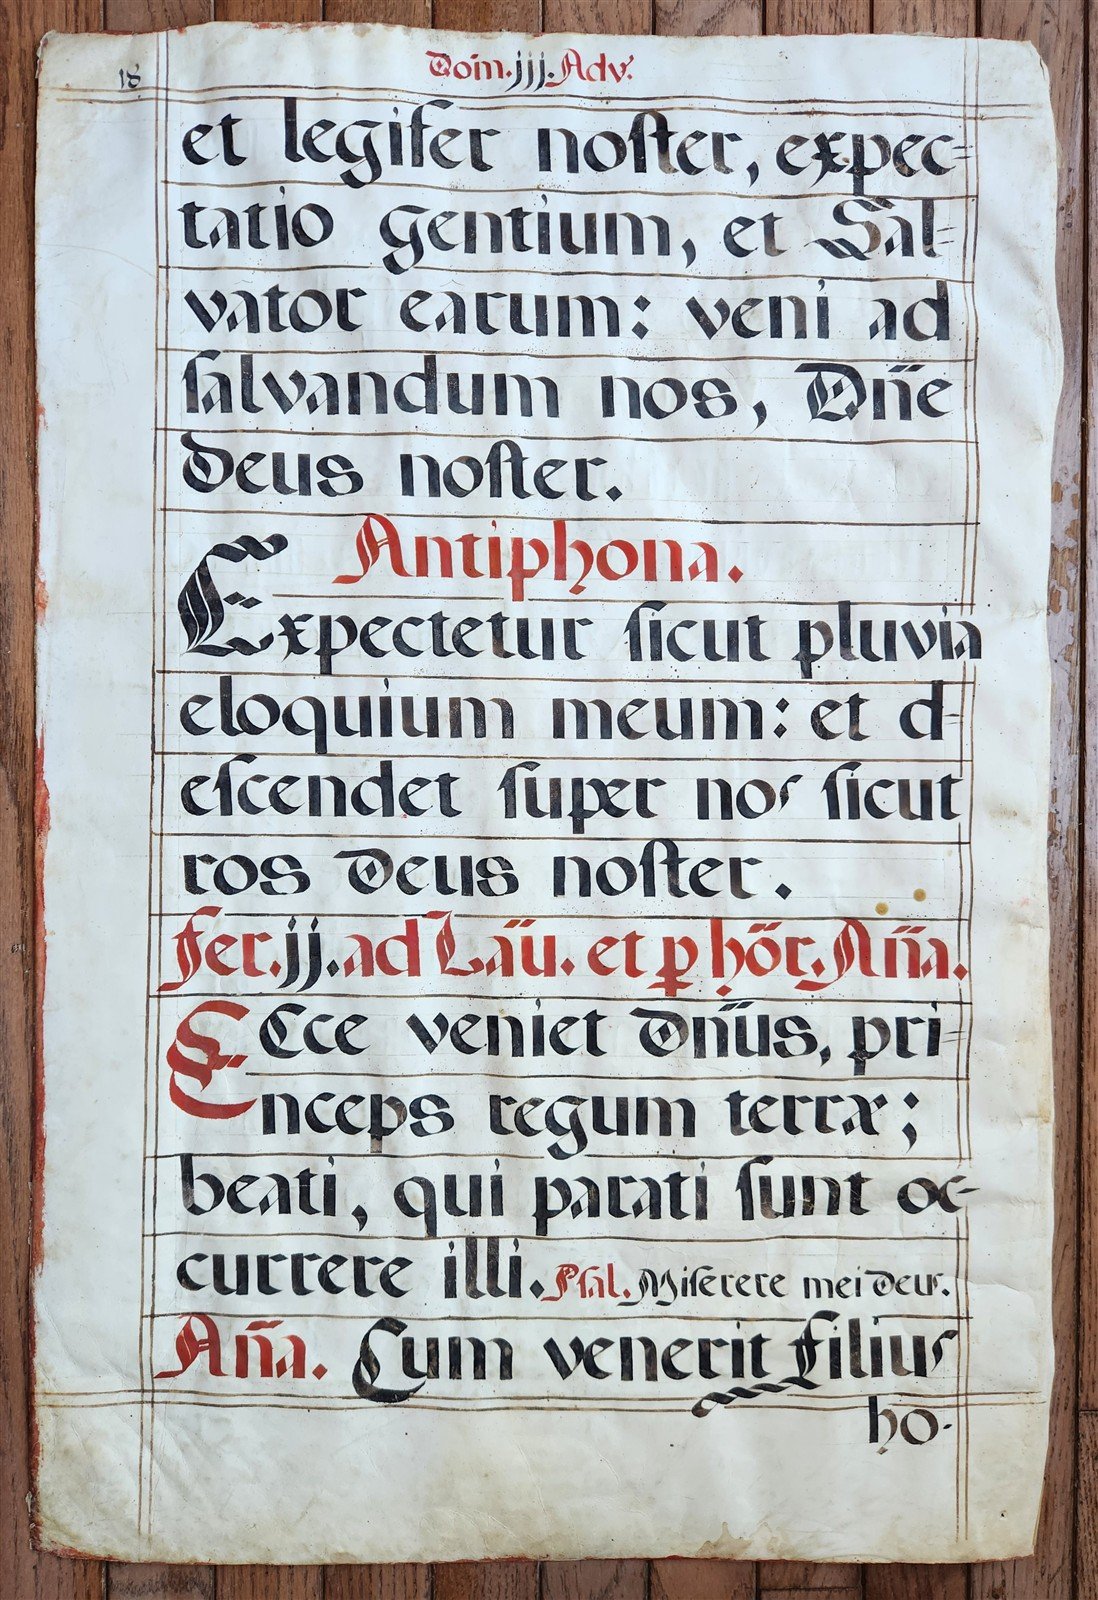 18 Dom̄.jjj.Adv.
et legifer noſter, expec=
tatio gentium, et Sal=
vator earum: veni ad
ſalvandum nos, Dn̄e
Deus noſter.
Antiphona.
Expectetur ſicut pluvia
eloquium meum: et d=
eſcendet ſuper nos ſicut
ros Deus noſter.
Fer.jj.ad Laū. et p hōr. An̄a.
ECce veniet Dn̄us, pri=
nceps regum terræ;
beati, qui parati ſunt oc-
currere illi. Pſal. Miſerere mei Deus.
An̄a. Cum venerit Filius
ho-